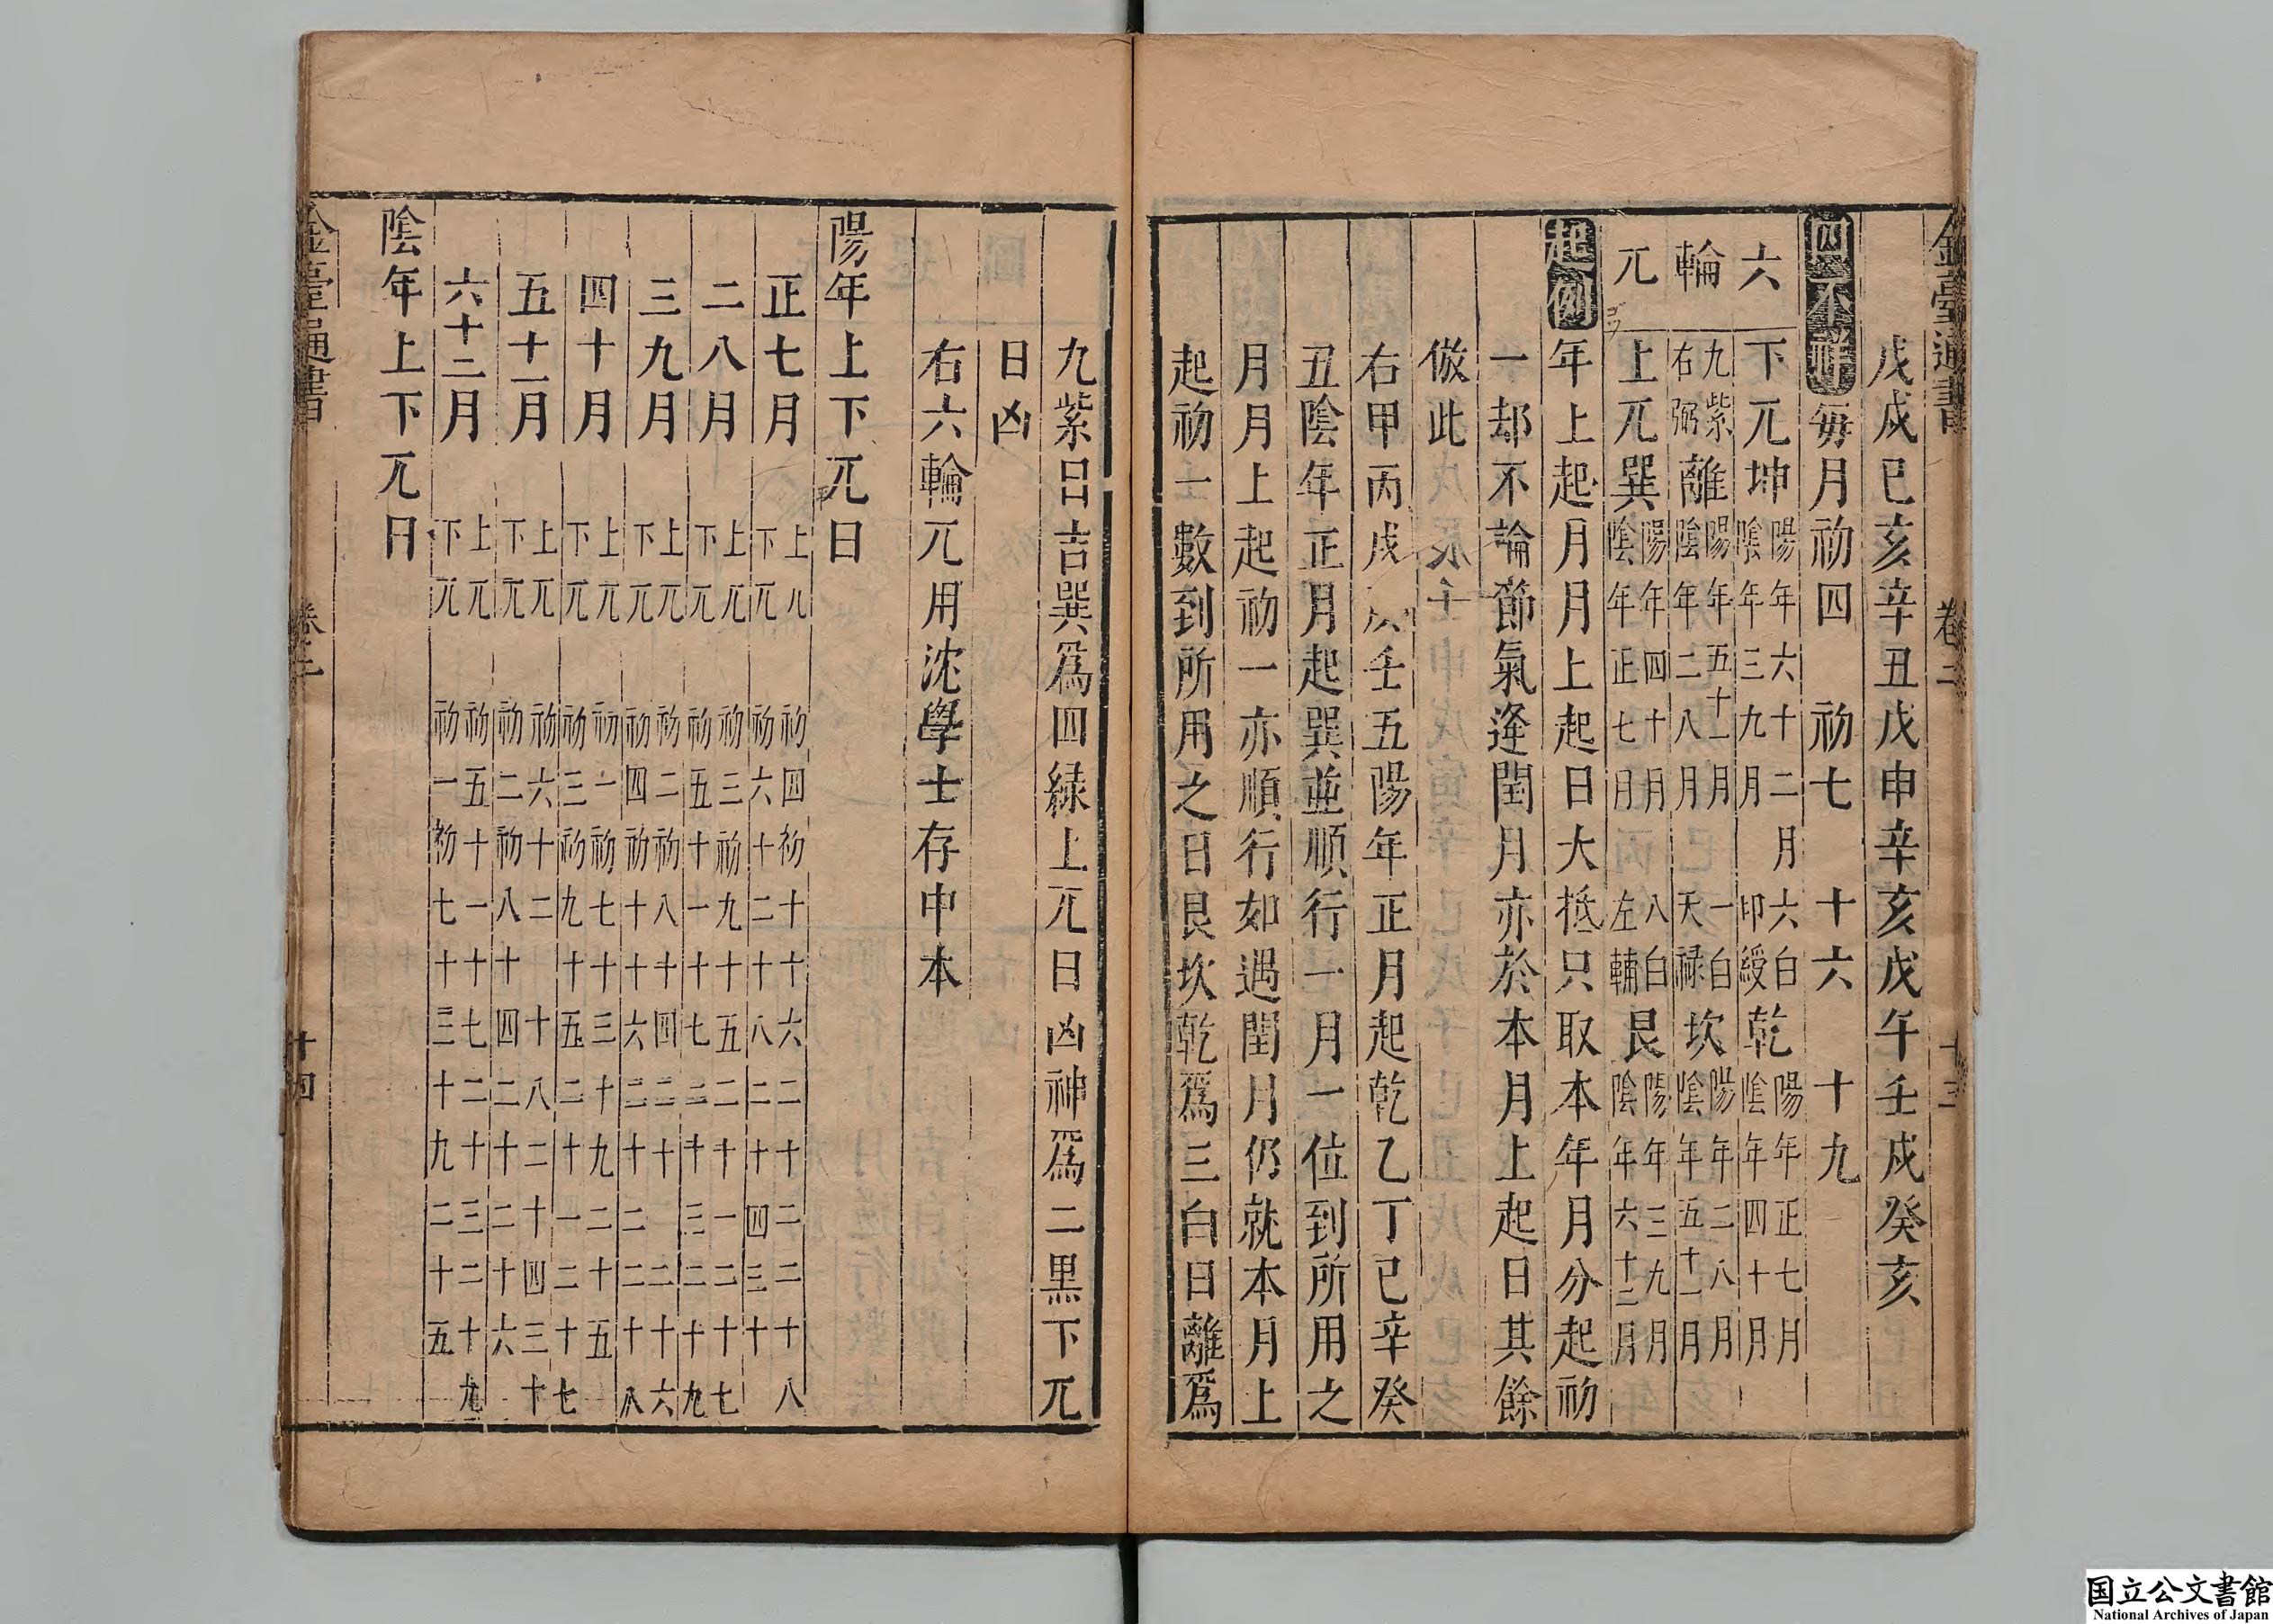 金臺通書 卷二 十三
戊戌巳亥辛丑戊申辛亥戊午壬戌癸亥
四不祥 每月初四 初七 十六 十九
六輪兀
下兀坤 陽年六十二月 陰年三九月 六白印綬乾 陽年正七月 陰年四十月
九紫右弼離 陽年五十一月 陰年二八月 一白天祿坎 陽年二八月 陰年五十一月
上兀巽 陽年四十月 陰年正七月 八白左輔艮 陽年三九月 陰年六十二月
起例 年上起月月上起日大抵只取本年月分起初
一却不論節氣逢閏月亦於本月上起日其餘
倣此
右甲丙戊庚壬五陽年正月起乾乙丁巳辛癸
丑陰年正月起巽並順行一月一位到所用之
月月上起初一亦順行如遇閏月仍就本月上
起初一數到所用之日艮坎乾爲三白日離爲
九紫日吉巽爲四緑上兀日凶神爲二黒下兀
日凶
右六輪兀用沈學士存中本
陽年上下兀日
正七月 上兀 初四初十十六二十二二十八
下兀 初六十二十八二十四三十
二八月 上兀 初三初九十五二十一二十七
下兀 初五十一十七二十三二十九
三九月 上兀 初二初八十四二十二十六
下兀 初四初十十六二十二二十八
四十月 上兀 初一初七十三十九二十五
下兀 初三初九十五二十一二十七
五十一月 上兀 初六十二十八二十四三十
下兀 初二初八十四二十二十六
六十二月 上兀 初五十一十七二十三二十九
下兀 初一初七十三十九二十五
陰年上下兀日
金臺通書 卷二 十四
国立公文書館
National Archives of Japan